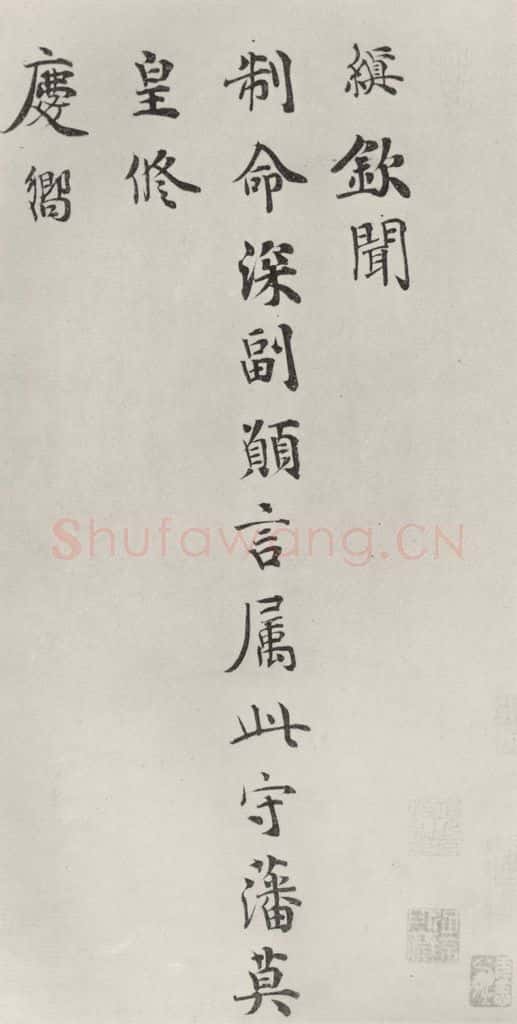 縝欽聞
制命深副願言属此守藩莫
皇修
慶嚮
Shufawang.CN